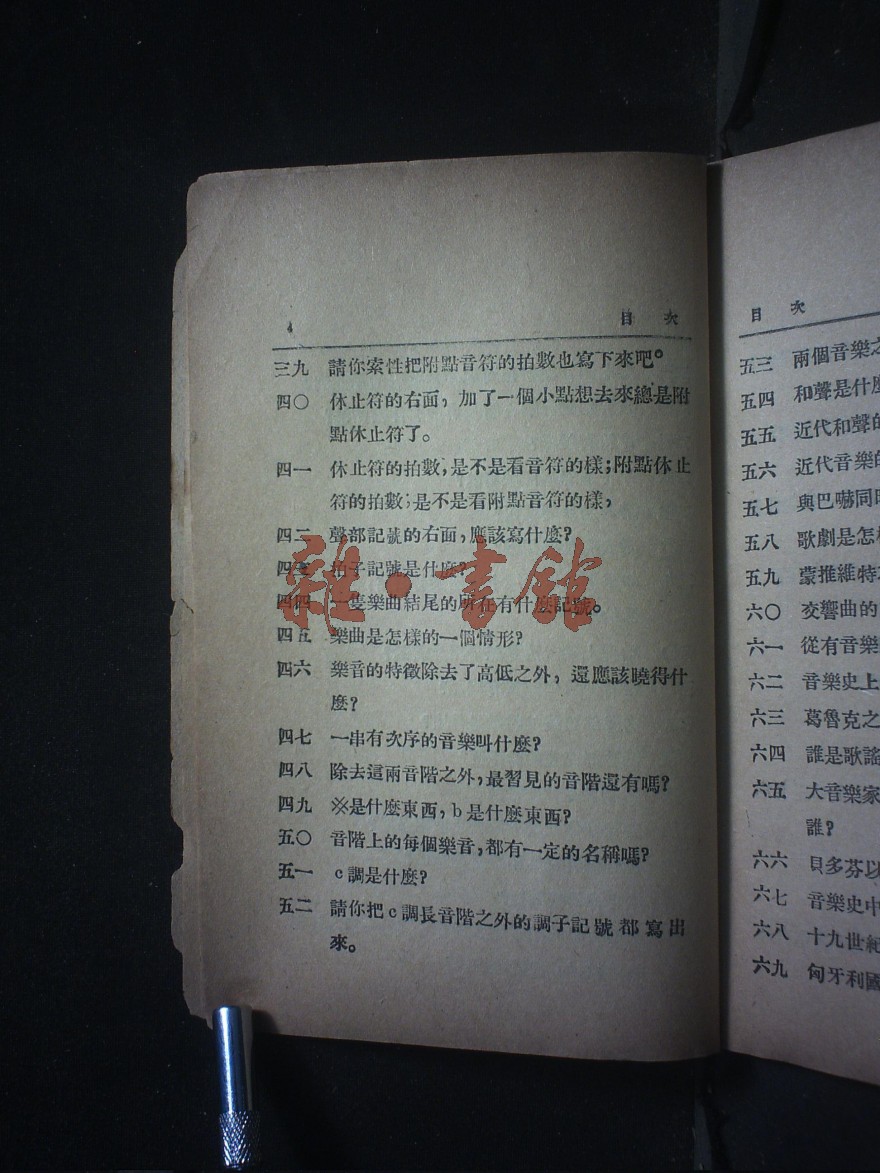 4 目次
三九 請你索性把附點音符的拍數也寫下來吧。
四〇 休止符的右面，加了一個小點想去來總是附
點休止符了。
四一 休止符的拍數，是不是看音符的樣；附點休止
符的拍數；是不是看附點音符的樣，
四二 聲部記號的右面，應該寫什麼？
四三 拍子記號是什麼？
四四 一隻樂曲結尾的所在有什麼記號。
四五 樂曲是怎樣的一個情形？
四六 樂音的特徵除去了高低之外，還應該曉得什
麼？
四七 一串有次序的音樂叫什麼？
四八 除去這兩音階之外，最習見的音階還有嗎？
四九 ※是什麼東西，b是什麼東西？
五〇 音階上的每個樂音，都有一定的名稱嗎？
五一 c調是什麼？
五二 請你把c調長音階之外的調子記號都寫出
來。
雜·書館
目次
五三 兩個音樂之
五四 和聲是什麼
五五 近代和聲的
五六 近代音樂的
五七 與巴嚇同時
五八 歌劇是怎樣
五九 蒙推維特
六〇 交響曲的
六一 從有音樂
六二 音樂史上
六三 葛魯克之
六四 誰是歌謠
六五 大音樂家
誰？
六六 貝多芬以
六七 音樂史中
六八 十九世紀
六九 匈牙利國